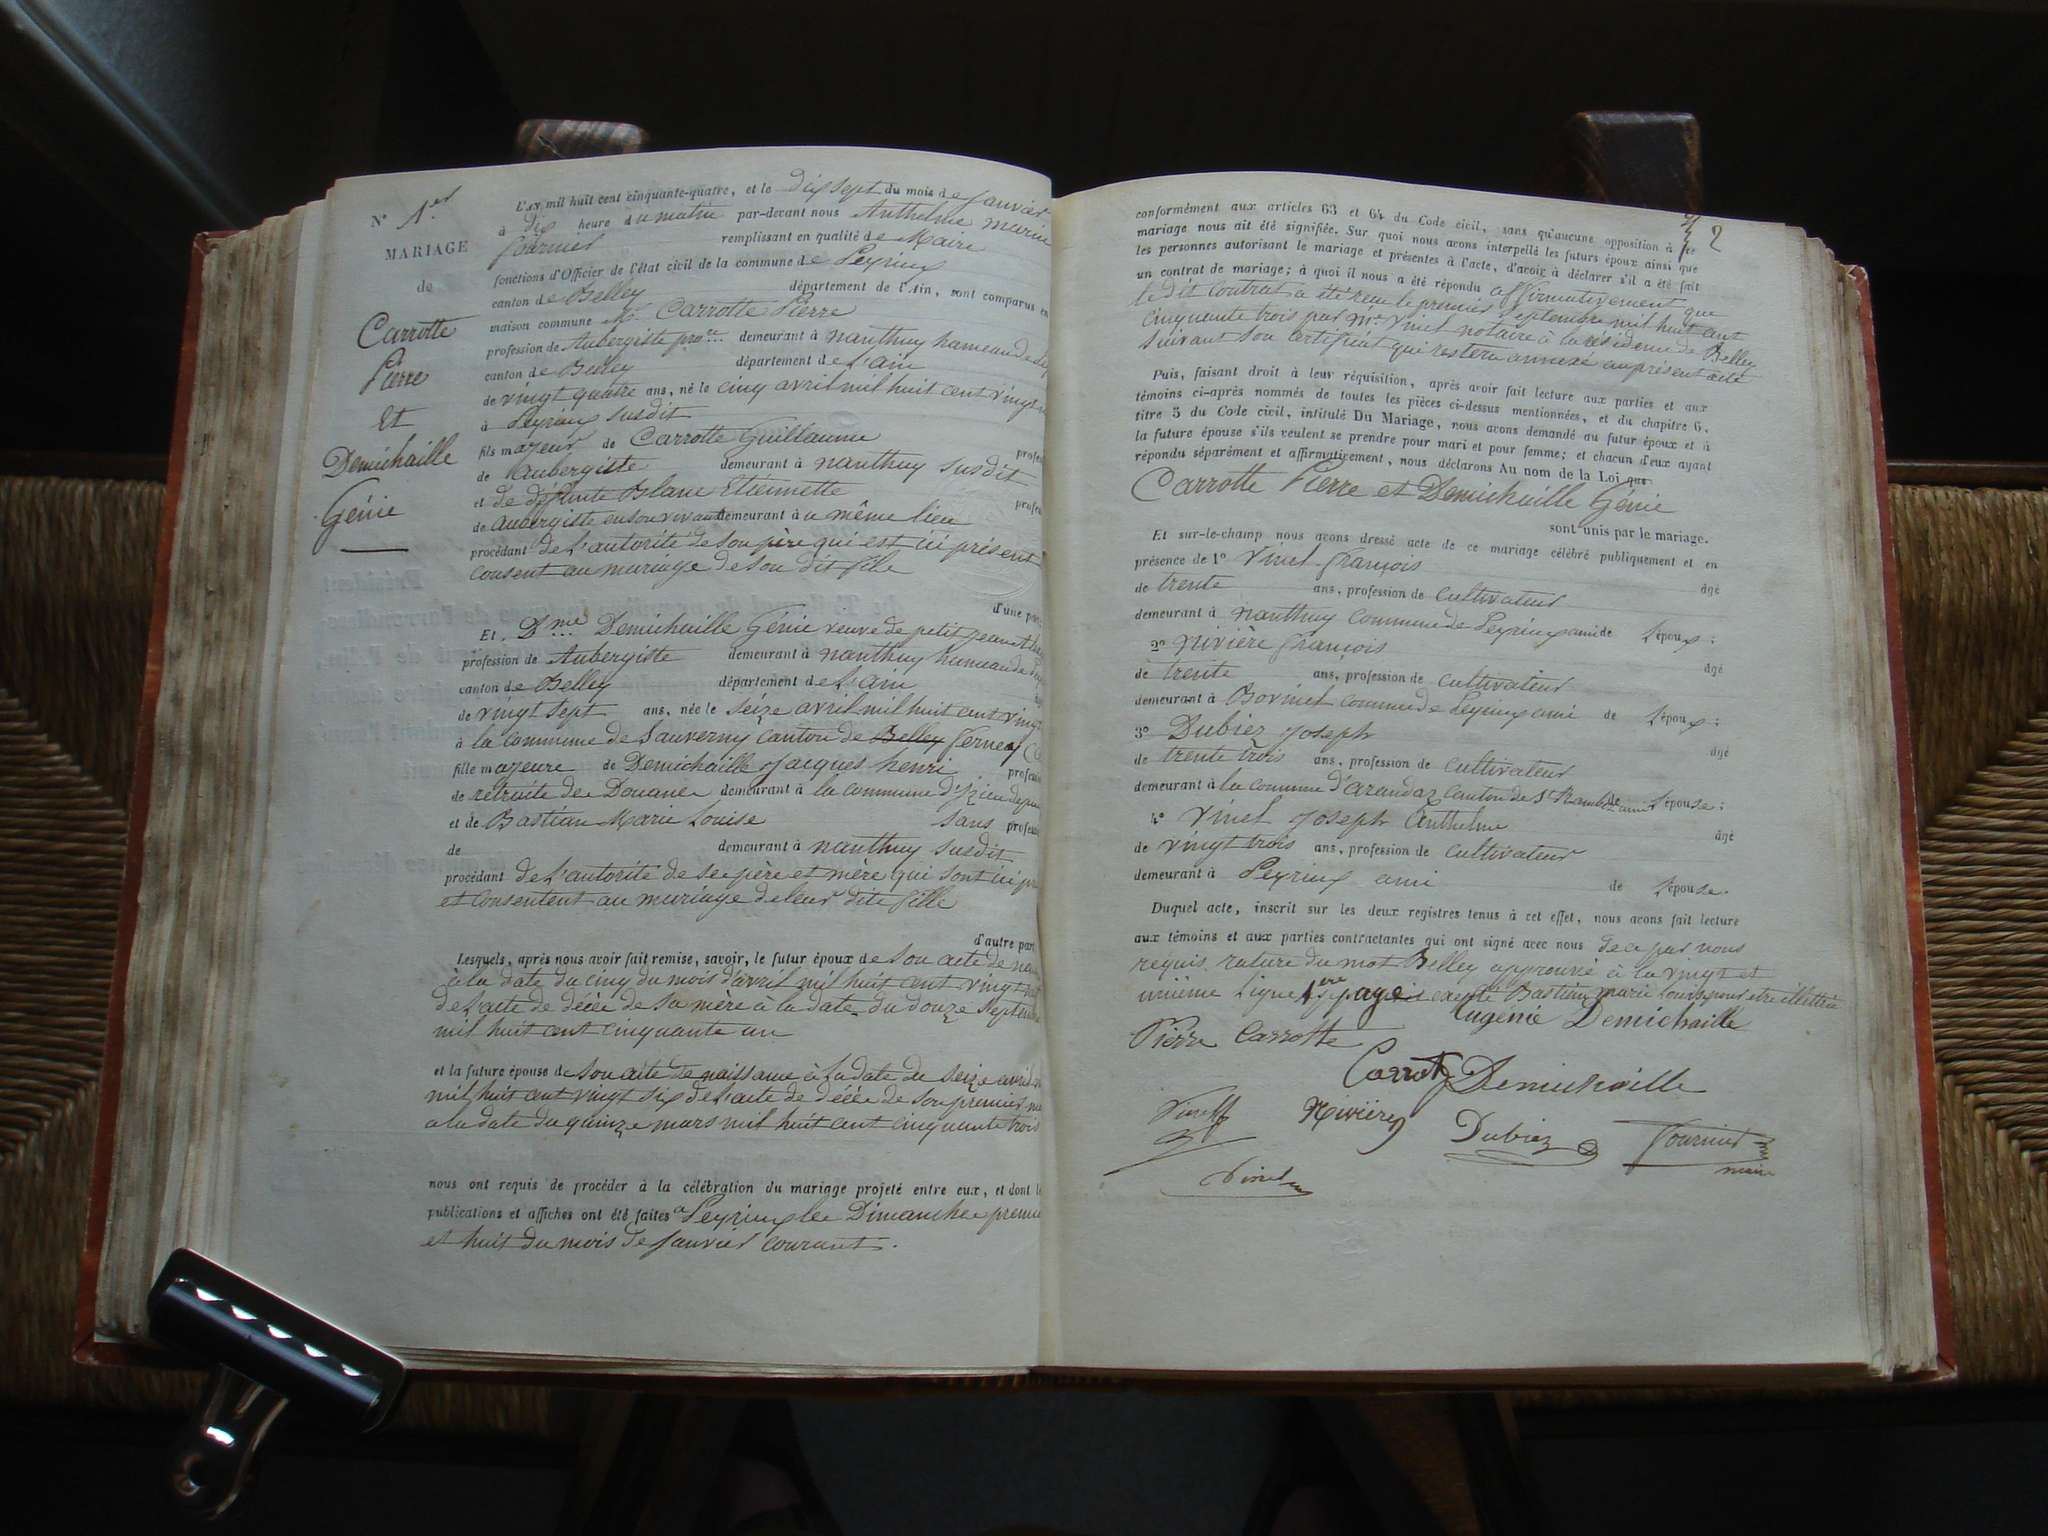 N° 1er
MARIAGE
de
Carrotte
Pierre
et
Demichaille
Génie
L'AN mil huit cent cinquante-quatre, et le dix sept du mois de Janvier
à dix heure du matin par-devant nous Anthelme marin
fournier remplissant en qualité de Maire
fonctions d'Officier de l'état civil de la commune de Peyrieux
canton de Belley département de l'Ain, sont comparus en
maison commune Mr Carrotte Pierre
profession de Aubergiste demeurant à nanthuy hameau de
canton de Belley département de L'ain
de vingt quatre ans, né le cinq avril mil huit cent vingt
à Peyrieux susdit
fils majeur de Carrotte Guillaume profes
de Aubergiste demeurant à nanthuy susdit
et de défunte Blanc Etiennette profes
de aubergiste en son vivant demeurant à u même lieu
procédant de L'autorité de son père qui est ici présent
consent au mariage de son dit fils
d'une part
Et Dme Demichaille Génie veuve de petit Jean
profession de Aubergiste demeurant à nanthuy hameau de
canton de Belley département de L'ain
de vingt sept ans, née le seize avril mil huit cent vingt
à la commune de Sauverny canton de Belley ferney
fille majeure de Demichaille Jacques henri profession
de retraite de Douane demeurant à la commune d'Izieu
et de Bastian Marie Louise sans profession
de demeurant à nanthuy susdit
procédant de L'autorité de se père et mère qui sont ici
et consentent au mariage de leur dite fille
d'autre part
Lesquels, après nous avoir fait remise, savoir, le futur époux de son acte de
à la date du cinq du mois d'avril mil huit cent vingt
de L'acte de décée de sa mère à la date du douze septembre
mil huit cent cinquante un
et la future épouse de son acte de naissance à la date de seize avril
mil huit cent vingt six de L'acte de décée de son premier
a la date du quinze mars mil huit cent cinquante trois
nous ont requis de procéder à la célébration du mariage projeté entre eux, et dont le
publications et affiches ont été faites a Peyrieux le Dimanche premier
et huit du mois de Janvier courant.
2
conformément aux articles 63 et 64 du Code civil, sans qu'aucune opposition à ce
mariage nous ait été signifiée. Sur quoi nous avons interpellé les futurs époux ainsi que
les personnes autorisant le mariage et présentes à l'acte, d'avoir à déclarer s'il a été fait
un contrat de mariage; à quoi il nous a été répondu affirmativement que
le dit contrat a été reçu le premier septembre mil huit cent
cinquante trois par Me Vinet notaire à la résidence de Belley
suivant son certificat qui restera annexé au présent acte
Puis, faisant droit à leur réquisition, après avoir fait lecture aux parties et aux
témoins ci-après nommés de toutes les pièces ci-dessus mentionnées, et du chapitre 6,
titre 5 du Code civil, intitulé Du Mariage, nous avons demandé au futur époux et à
la future épouse s'ils veulent se prendre pour mari et pour femme; et chacun d'eux ayant
répondu séparément et affirmativement, nous déclarons Au nom de la Loi que
Carrotte Pierre et Demichaille Génie
sont unis par le mariage.
Et sur-le-champ nous avons dressé acte de ce mariage célébré publiquement et en
présence de 1° Vinet françois
de trente ans, profession de cultivateur âgé
demeurant à nanthuy commune de Peyrieux ami de l'époux;
2° Rivière françois
de trente ans, profession de cultivateur âgé
demeurant à Bovinet commune de Peyrieux ami de l'époux;
3° Dubiez Joseph
de trente trois ans, profession de cultivateur âgé
demeurant à la commune d'arandaz canton de St Rambert ami de l'épouse;
4° Vinet Joseph Anthelme
de vingt trois ans, profession de cultivateur âgé
demeurant à Peyrieux ami de l'épouse.
Duquel acte, inscrit sur les deux registres tenus à cet effet, nous avons fait lecture
aux témoins et aux parties contractantes qui ont signé avec nous de ce par nous
requis. rature du mot Belley approuvé à la vingt et
unième ligne 1ère page excepté Bastian marie Louise pour etre illettrée
Pierre Carrotte Eugénie Demichaille
Carrott Demichaille
Vinet Rivière Dubiez Fournier
maire
Vinet